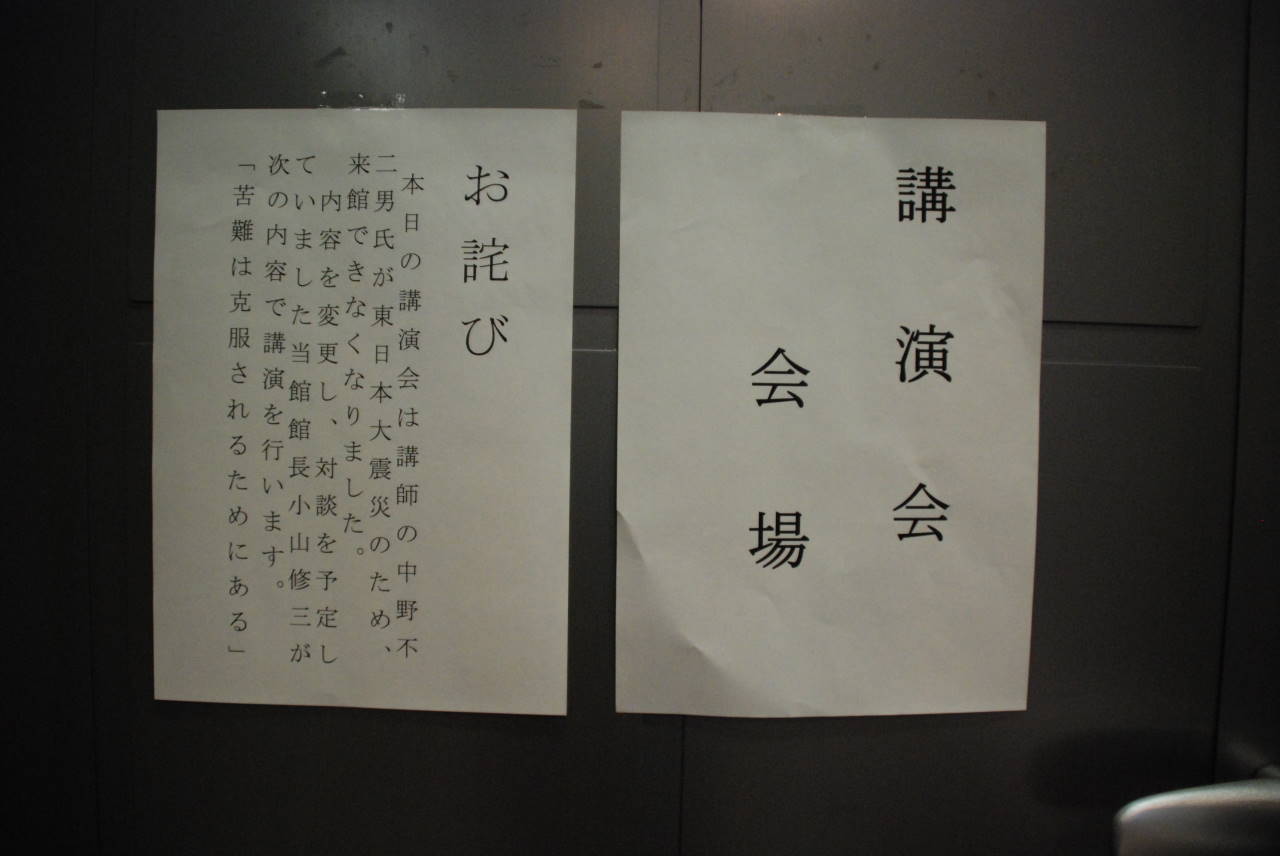 講演会
会場
お詫び
本日の講演会は講師の中野不
二男氏が東日本大震災のため、
来館できなくなりました。
内容を変更し、対談を予定し
ていました当館館長小山修三が
次の内容で講演を行います。
「苦難は克服されるためにある」